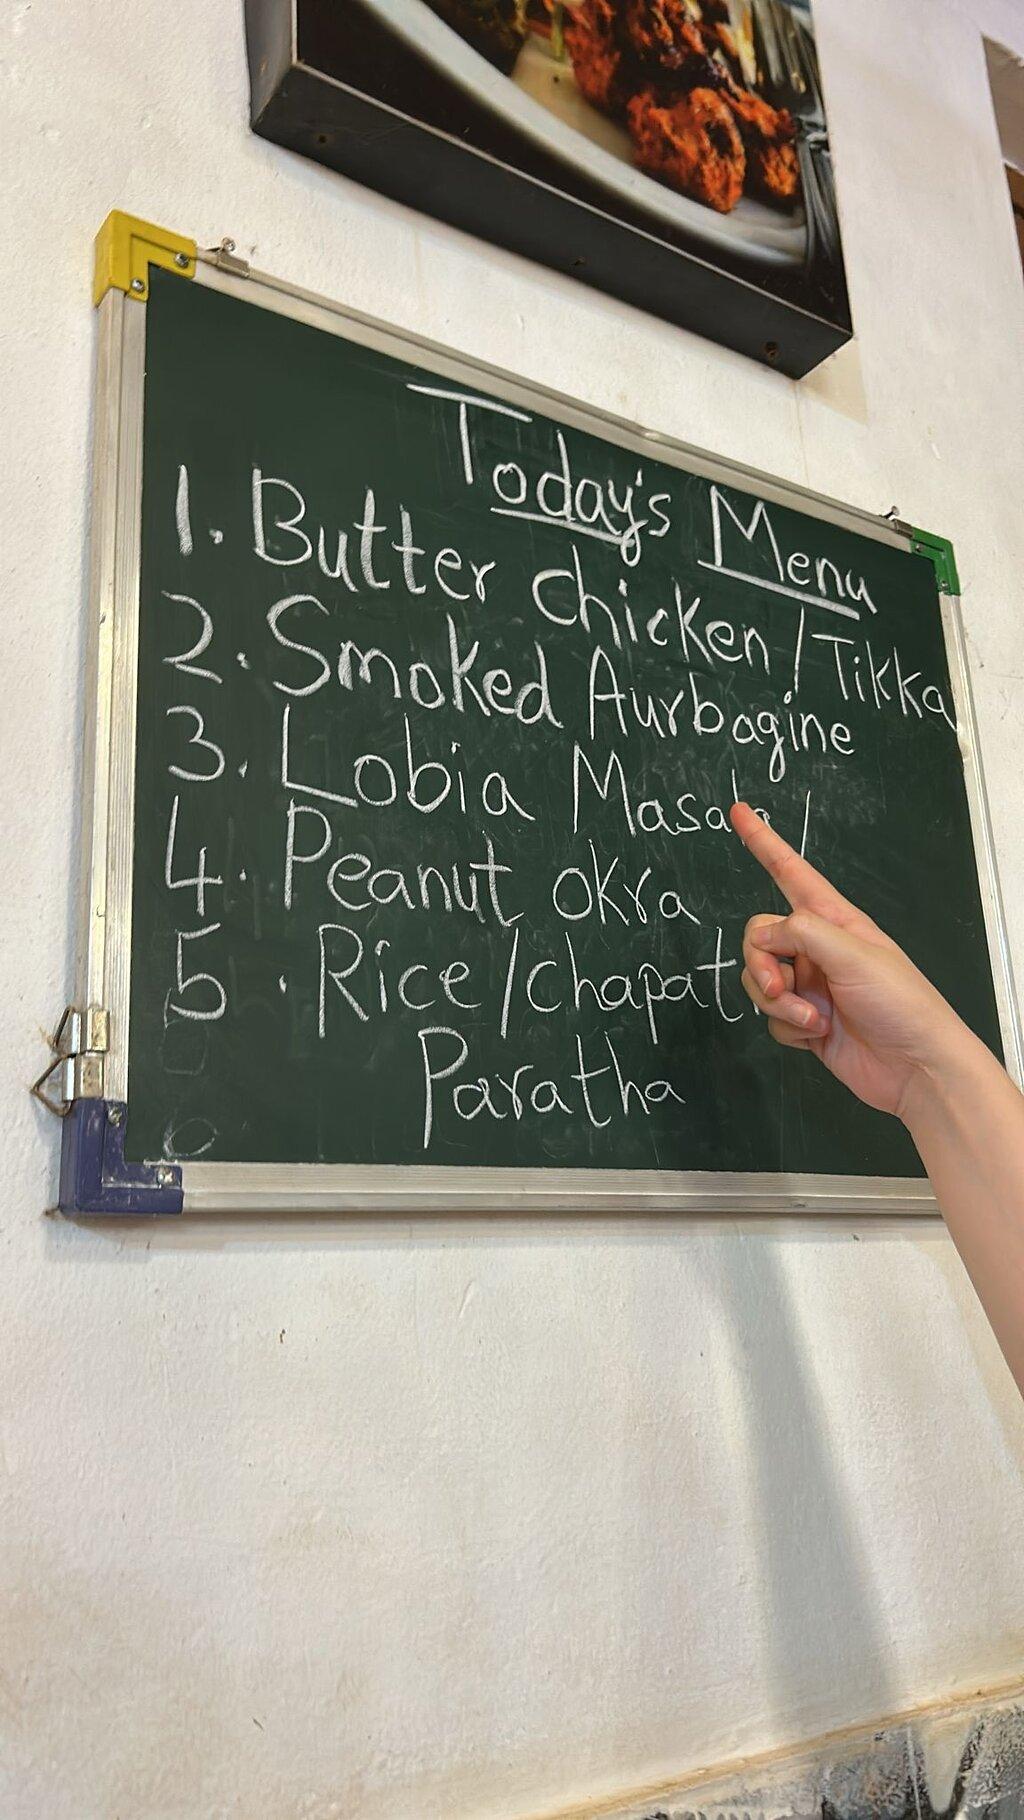 Today's Menu
1. Butter chicken / Tikka
2. Smoked Aurbagine
3. Lobia Masala /
4. Peanut okra
5. Rice / chapati
Paratha